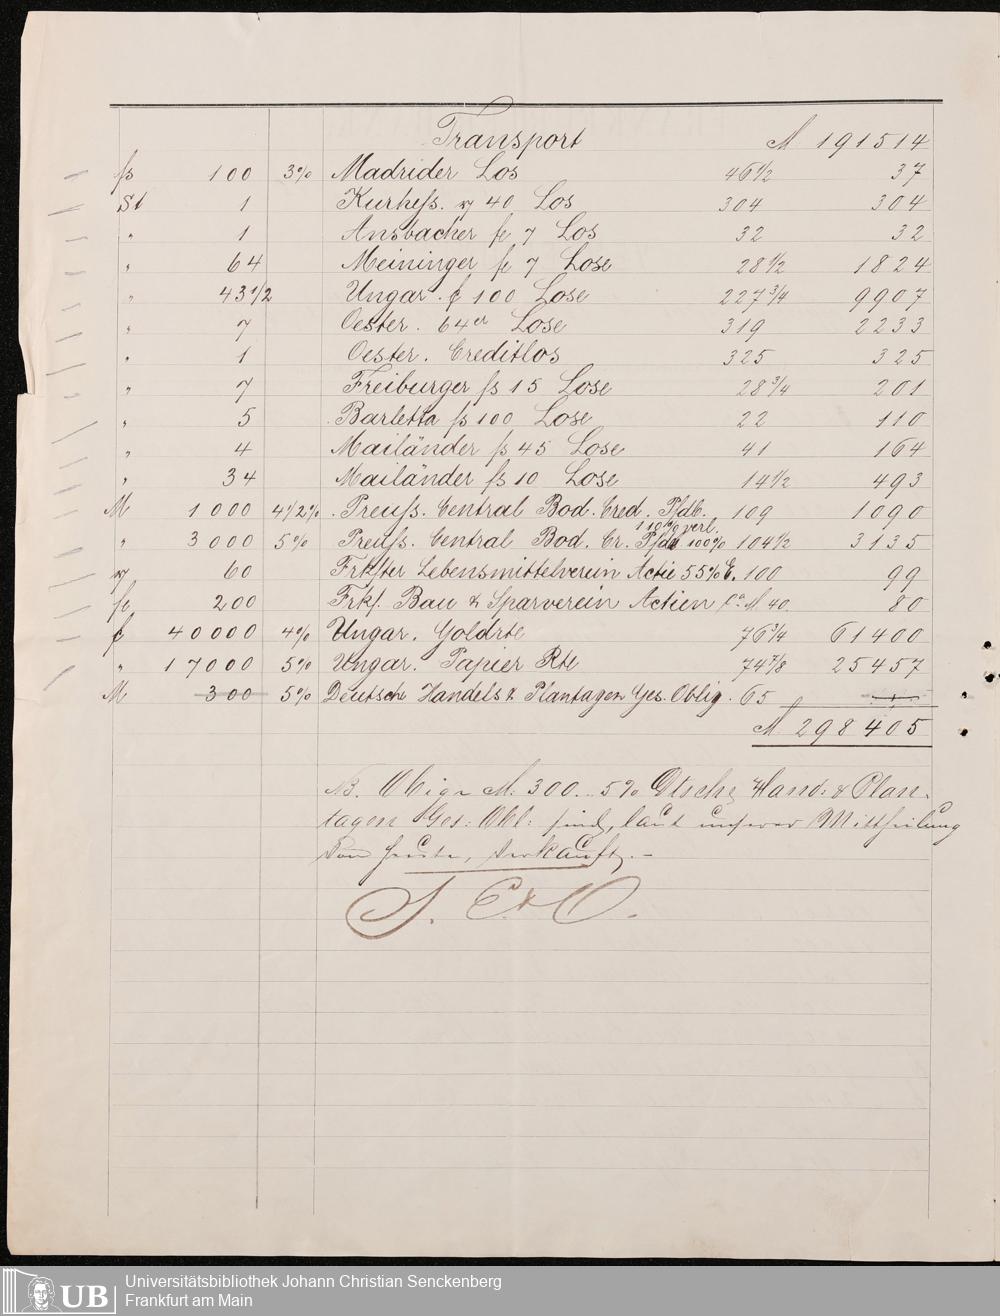 Transport M 191514
fs 100 3% Madrider Los 46½ 37
St 1 Kurhess. 40 Los 304 304
" 1 Ansbacher fl 7 Los 32 32
" 64 Meininger fl 7 Lose 28½ 1824
" 43½ Ungar. fl 100 Lose 227¾ 9907
" 7 Oester. 64er Lose 319 2233
" 1 Oester. Creditlos 325 325
" 7 Freiburger fs 15 Lose 28¾ 201
" 5 Barletta fs 100 Lose 22 110
" 4 Mailänder fs 45 Lose 41 164
" 34 Mailänder fs 10 Lose 14½ 493
M 1000 4½% Preuss. Central Bod. Cred. Pfdb. 109 1090
110% verl.
" 3000 5% Preuss. Central Bod. Cr. 100% 104½ 3135
60 Frkfter Lebensmittelverein Actie 55% E. 100 99
fl 200 Frkf. Bau & Sparverein Actien Ca M 40. 80
fl 40000 4% Ungar. Goldrte 76¾ 61400
" 17000 5% Ungar. Papier Rte 74⅞ 25457
M 300 5% Deutsch Handels & Plantagen Ges. Oblig. 65
M 298405
NB. Obige M. 300. 5% Dtsche Hand: & Plan-
tagen Ges: Obl: sind, laut unserer Mittheilung
von heute, verkauft. -
S. E. & O.
UB
Universitätsbibliothek Johann Christian Senckenberg
Frankfurt am Main